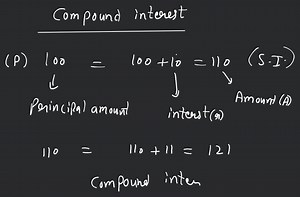 Compound interest
(P) 100 = 100 + 10 = 110 (S.I.)
Perincipal amount interst(r) Amount(A)
110 = 110 + 11 = 121
Compound inten